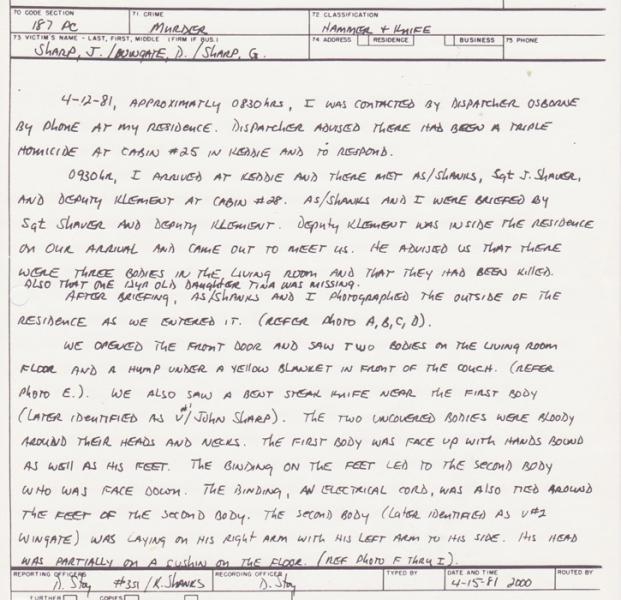 70 CODE SECTION 71 CRIME 72 CLASSIFICATION
187 PC MURDER HAMMER + KNIFE
73 VICTIM'S NAME - LAST, FIRST, MIDDLE (FIRM IF BUS.) 74 ADDRESS RESIDENCE BUSINESS 75 PHONE
SHARP, J. / WINGATE, D. / SHARP, G.
4-12-81, APPROXIMATLY 0830HRS, I WAS CONTACTED BY DISPATCHER OSBORNE
BY PHONE AT MY RESIDENCE. DISPATCHER ADVISED THERE HAD BEEN A TRIPLE
HOMICIDE AT CABIN #25 IN KEDDIE AND TO RESPOND.
0930HR, I ARRIVED AT KEDDIE AND THERE MET AS/SHANKS, Sgt J. SHAVER,
AND DEPUTY KLEMENT AT CABIN #28. AS/SHANKS AND I WERE BRIEFED BY
Sgt SHAVER AND DEPUTY KLEMENT. DEPUTY KLEMENT WAS INSIDE THE RESIDENCE
ON OUR ARRIVAL AND CAME OUT TO MEET US. HE ADVISED US THAT THERE
WERE THREE BODIES IN THE LIVING ROOM AND THAT THEY HAD BEEN KILLED.
ALSO THAT ONE 13YR OLD DAUGHTER TINA WAS MISSING.
AFTER BRIEFING, AS/SHANKS AND I PHOTOGRAPHED THE OUTSIDE OF THE
RESIDENCE AS WE ENTERED IT. (REFER PHOTO A, B, C, D).
WE OPENED THE FRONT DOOR AND SAW TWO BODIES ON THE LIVING ROOM
FLOOR AND A HUMP UNDER A YELLOW BLANKET IN FRONT OF THE COUCH. (REFER
PHOTO E.). WE ALSO SAW A BENT STEAK KNIFE NEAR THE FIRST BODY
(LATER IDENTIFIED AS V#1/JOHN SHARP). THE TWO UNCOVERED BODIES WERE BLOODY
AROUND THEIR HEADS AND NECKS. THE FIRST BODY WAS FACE UP WITH HANDS BOUND
AS WELL AS HIS FEET. THE BINDING ON THE FEET LED TO THE SECOND BODY
WHO WAS FACE DOWN. THE BINDING, AN ELECTRICAL CORD, WAS ALSO TIED AROUND
THE FEET OF THE SECOND BODY. THE SECOND BODY (LATER IDENTIFIED AS V#2
WINGATE) WAS LAYING ON HIS RIGHT ARM WITH HIS LEFT ARM TO HIS SIDE. HIS HEAD
WAS PARTIALLY ON A CUSHIN ON THE FLOOR. (REF PHOTO F THRU I).
REPORTING OFFICERS RECORDING OFFICER TYPED BY DATE AND TIME ROUTED BY
D. Stoy #351 / R. SHANKS D. Stoy 4-15-81 2000
FURTHER COPIES